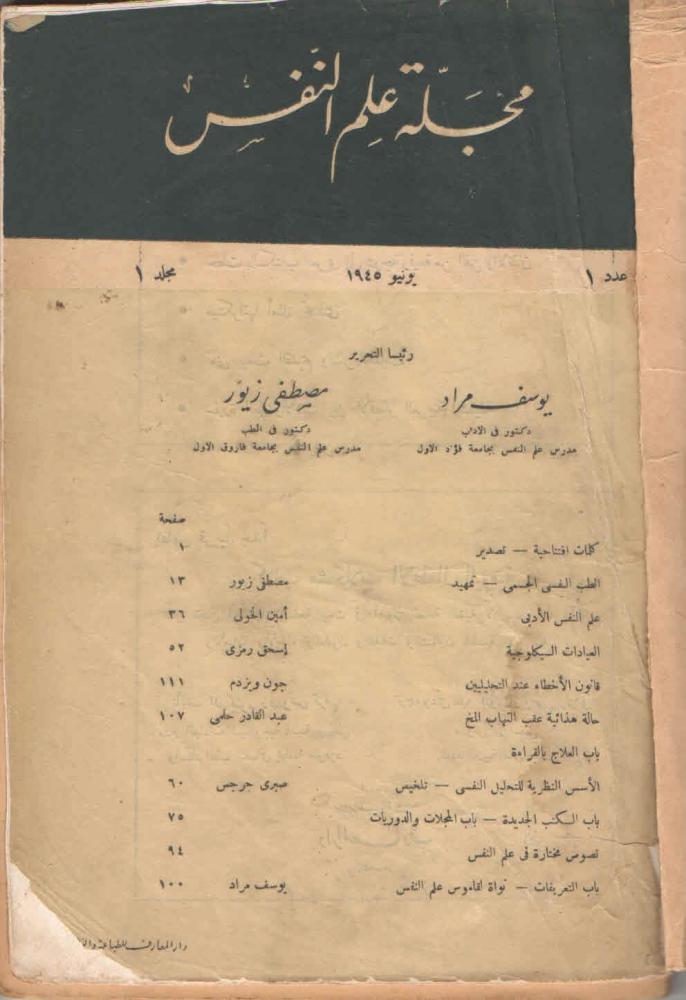 مجلّة علم النّفس
عدد ١ يونيو ١٩٤٥ مجلد ١
رئيسا التحرير
يوسف مراد مصطفى زيور
دكتور فى الآداب دكتور فى الطب
مدرس علم النفس بجامعة فؤاد الاول مدرس علم النفس بجامعة فاروق الاول
صفحة
كلمات افتتاحية — تصدير ١
الطب النفسى الجسمى — تمهيد مصطفى زيور ١٣
علم النفس الأدبى أمين الخولى ٣٦
العيادات السيكلوجية إسحق رمزى ٥٢
قانون الأخطاء عند التحليليين جون ويزدم ١١١
حالة هذائية عقب التهاب المخ عبد القادر حلمى ١٠٧
باب العلاج بالقراءة
الأسس النظرية للتحليل النفسى — تلخيص صبرى جرجس ٦٠
باب الكتب الجديدة — باب المجلات والدوريات ٧٥
نصوص مختارة فى علم النفس ٩٤
باب التعريفات — نواة لقاموس علم النفس يوسف مراد ١٠٠
دار المعارف للطباعة